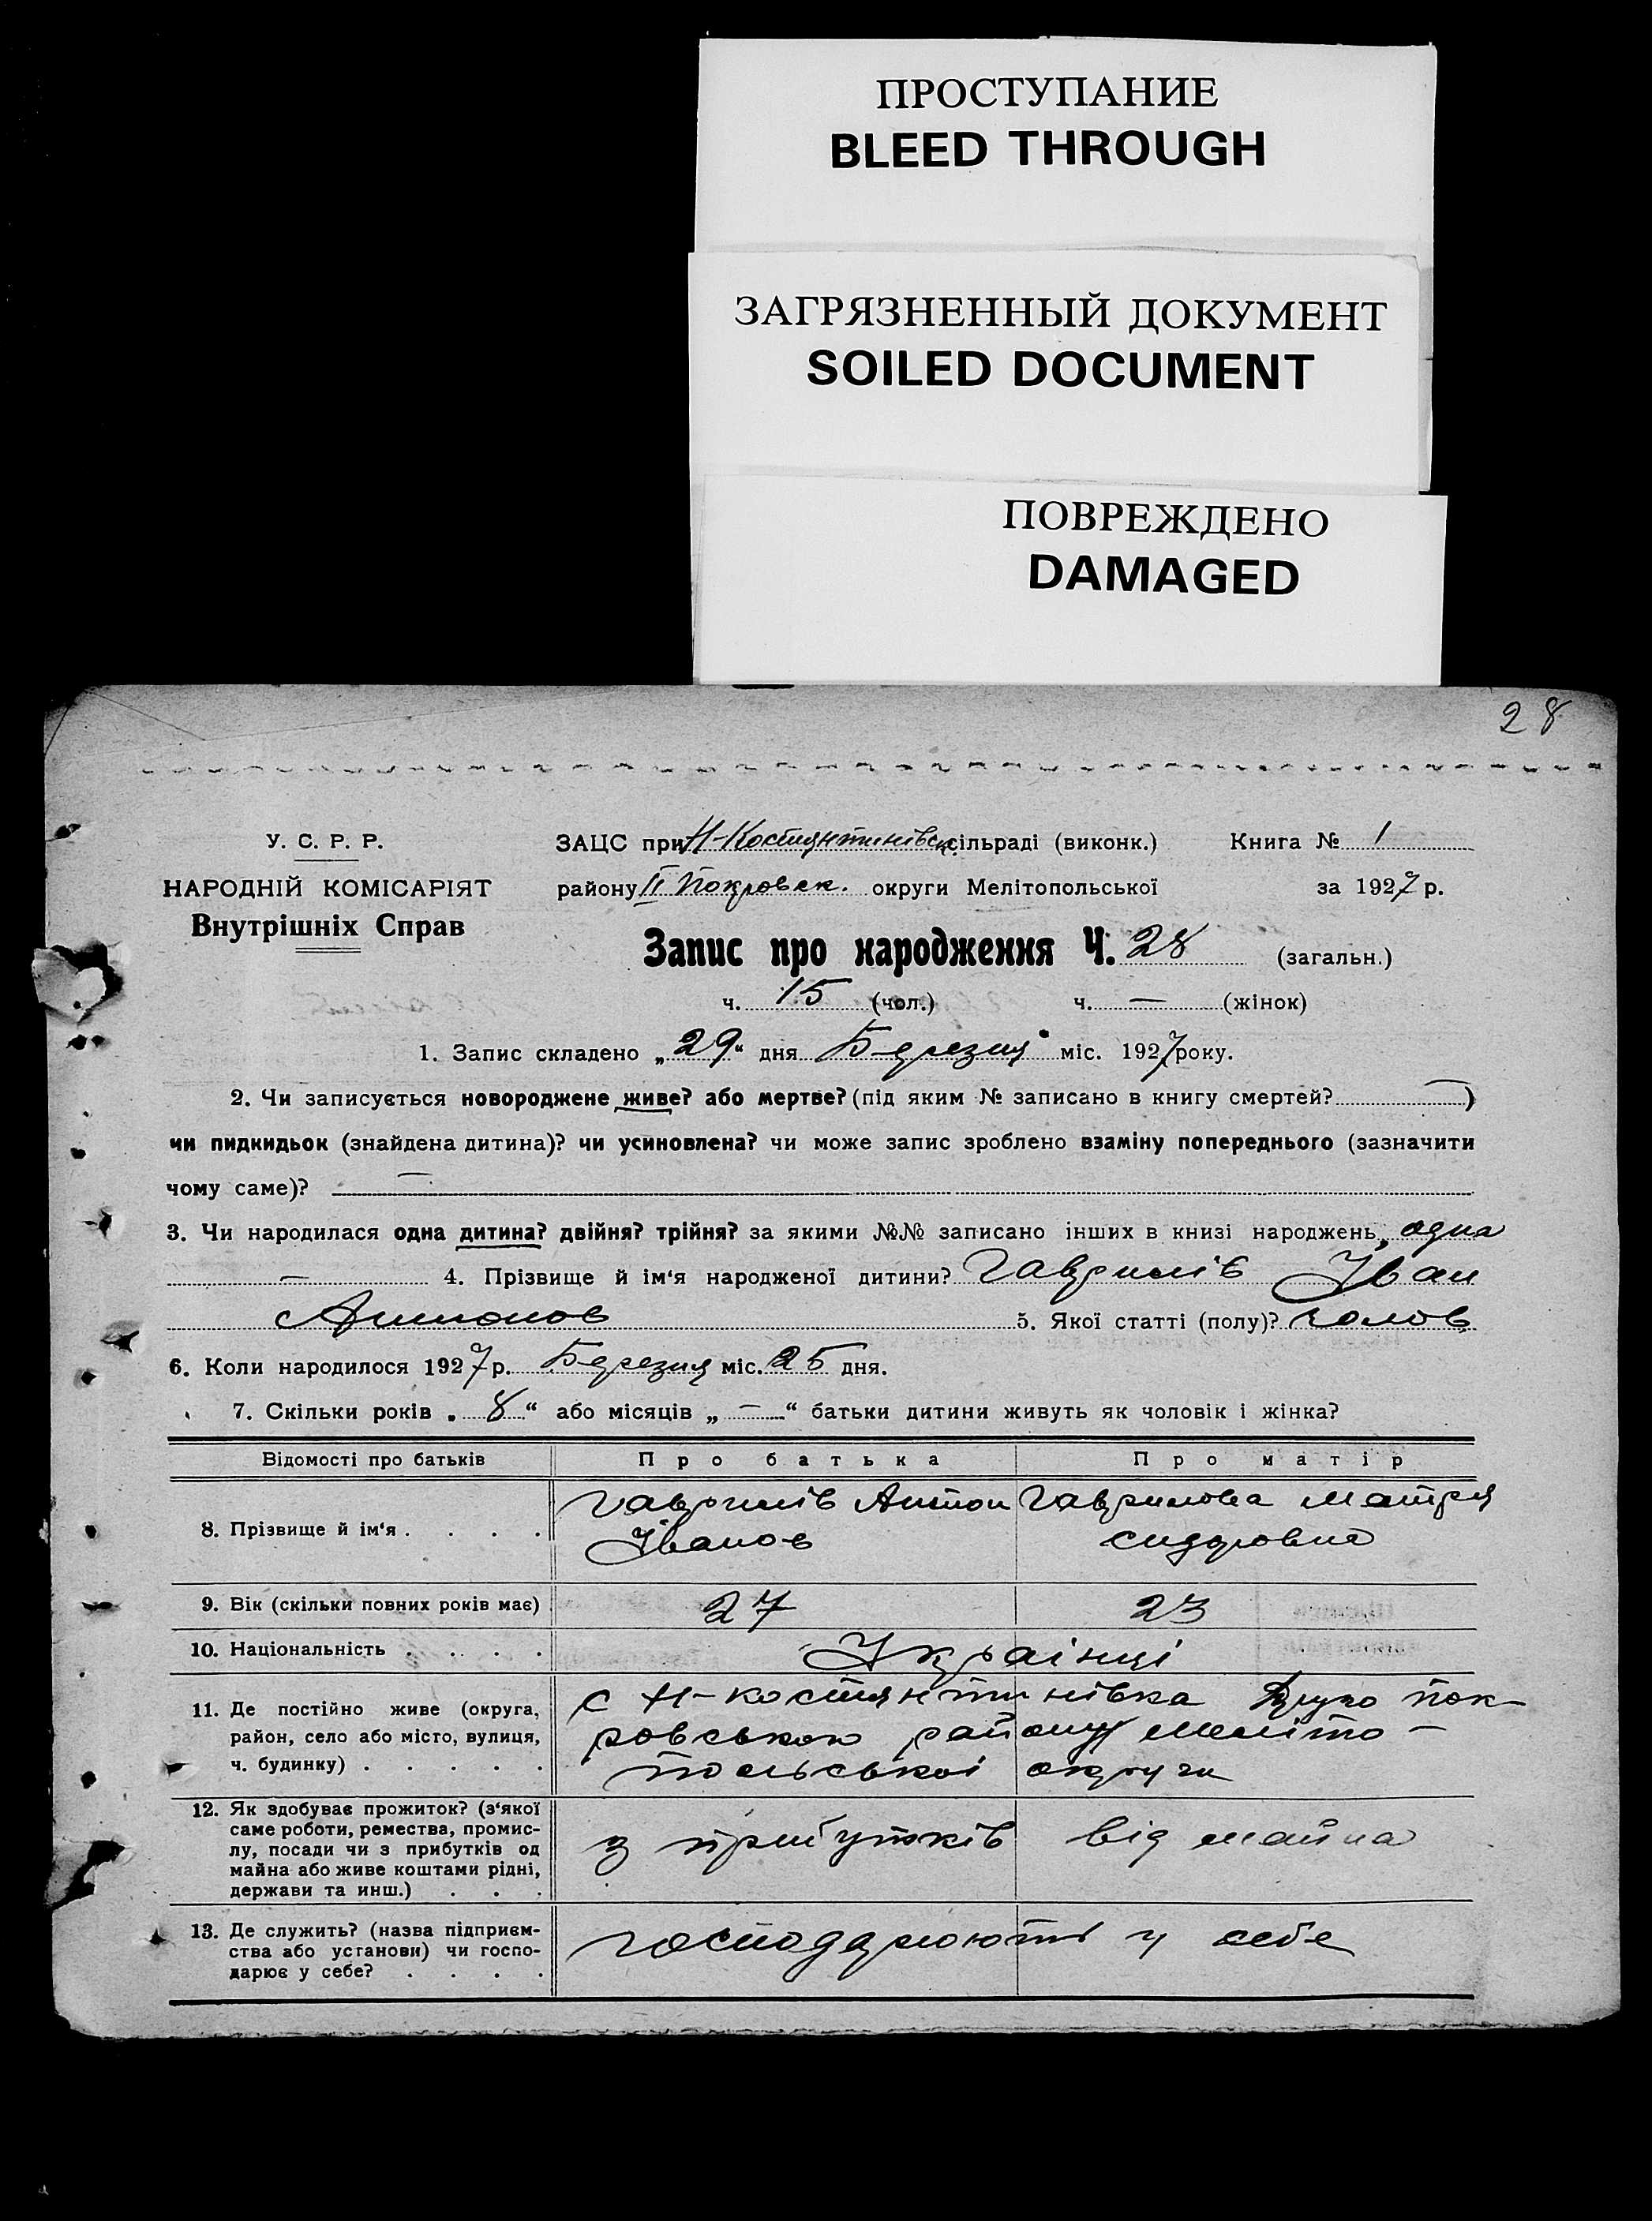 ПРОСТУПАНИЕ
BLEED THROUGH
ЗАГРЯЗНЕННЫЙ ДОКУМЕНТ
SOILED DOCUMENT
ПОВРЕЖДЕНО
DAMAGED
28
У. С. Р. Р.
НАРОДНІЙ КОМІСАРІЯТ
Внутрішніх Справ
ЗАЦС при Н-Костянтинівськ. сільраді (виконк.) Книга № 1
району ІІ Покровськ. округи Мелітопольської за 1927 р.
Запис про народження Ч. 28 (загальн.)
ч. 15 (чол.) ч. — (жінок)
1. Запис складено „29“ дня Березня міс. 1927 року.
2. Чи записується новороджене живе? або мертве? (під яким № записано в книгу смертей? —)
чи пидкидьок (знайдена дитина)? чи усиновлена? чи може запис зроблено взаміну попереднього (зазначити
чому саме)? —
3. Чи народилася одна дитина? двійня? трійня? за якими №№ записано інших в книзі народжень, одна
— 4. Прізвище й ім‘я народженої дитини? Гаврилів Іван
Антонов 5. Якої статті (полу)? чолов
6. Коли народилося 1927 р. Березня міс. 25 дня.
7. Скільки років „8“ або місяців „—“ батьки дитини живуть як чоловік і жінка?
Відомості про батьків Про батька Про матір
8. Прізвище й ім‘я . . . .
Гаврилів Антон
Іванов
Гаврилова Матрья
Сидоровна
9. Вік (скільки повних років має) 27 23
10. Національність . . . . Українці
11. Де постійно живе (округа,
район, село або місто, вулиця,
ч. будинку) . . . . .
с Н-Костянтинівка Друго Пок-
ровського району Меліто-
польської округи
12. Як здобуває прожиток? (з‘якої
саме роботи, ремества, промис-
лу, посади чи з прибутків од
майна або живе коштами рідні,
держави та инш.) . . .
з прибутків від майна
13. Де служить? (назва підприєм-
ства або установи) чи госпо-
дарює у себе? . . . .
господарюють у себе